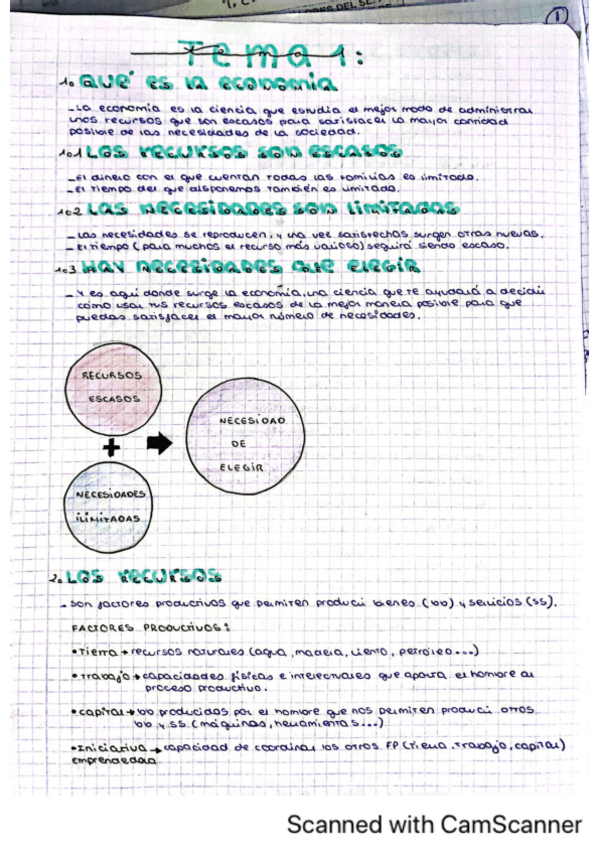 ①
Tema 1:
1. QUÉ ES LA ECONOMÍA
- La economía es la ciencia que estudia el mejor modo de administrar
unos recursos que son escasos para satisfacer la mayor cantidad
posible de las necesidades de la sociedad.
1.1 LOS RECURSOS SON ESCASOS
- El dinero con el que cuentan todas las familias es limitado.
- El tiempo del que disponemos también es limitado.
1.2 LAS NECESIDADES SON ILIMITADAS
- Las necesidades se reproducen, y una vez satisfechas surgen otras nuevas.
- El tiempo (para muchos el recurso más valioso) seguirá siendo escaso.
1.3 HAY NECESIDADES QUE ELEGIR
- Y es aquí donde surge la economía, una ciencia que te ayudará a decidir
cómo usar tus recursos escasos de la mejor manera posible para que
puedas satisfacer el mayor número de necesidades.
RECURSOS
ESCASOS
+
NECESIDADES
ILIMITADAS
NECESIDAD
DE
ELEGIR
2. LOS RECURSOS
- Son factores productivos que permiten producir bienes (bb) y servicios (ss).
FACTORES PRODUCTIVOS:
• Tierra → recursos naturales (agua, madera, viento, petróleo...)
• Trabajo → capacidades físicas e intelectuales que aporta el hombre al
proceso productivo.
• Capital → bb producidos por el hombre que nos permiten producir otros
bb y ss (máquinas, herramientas...)
• Iniciativa → capacidad de coordinar los otros FP (tierra, trabajo, capital)
emprendedora
Scanned with CamScanner